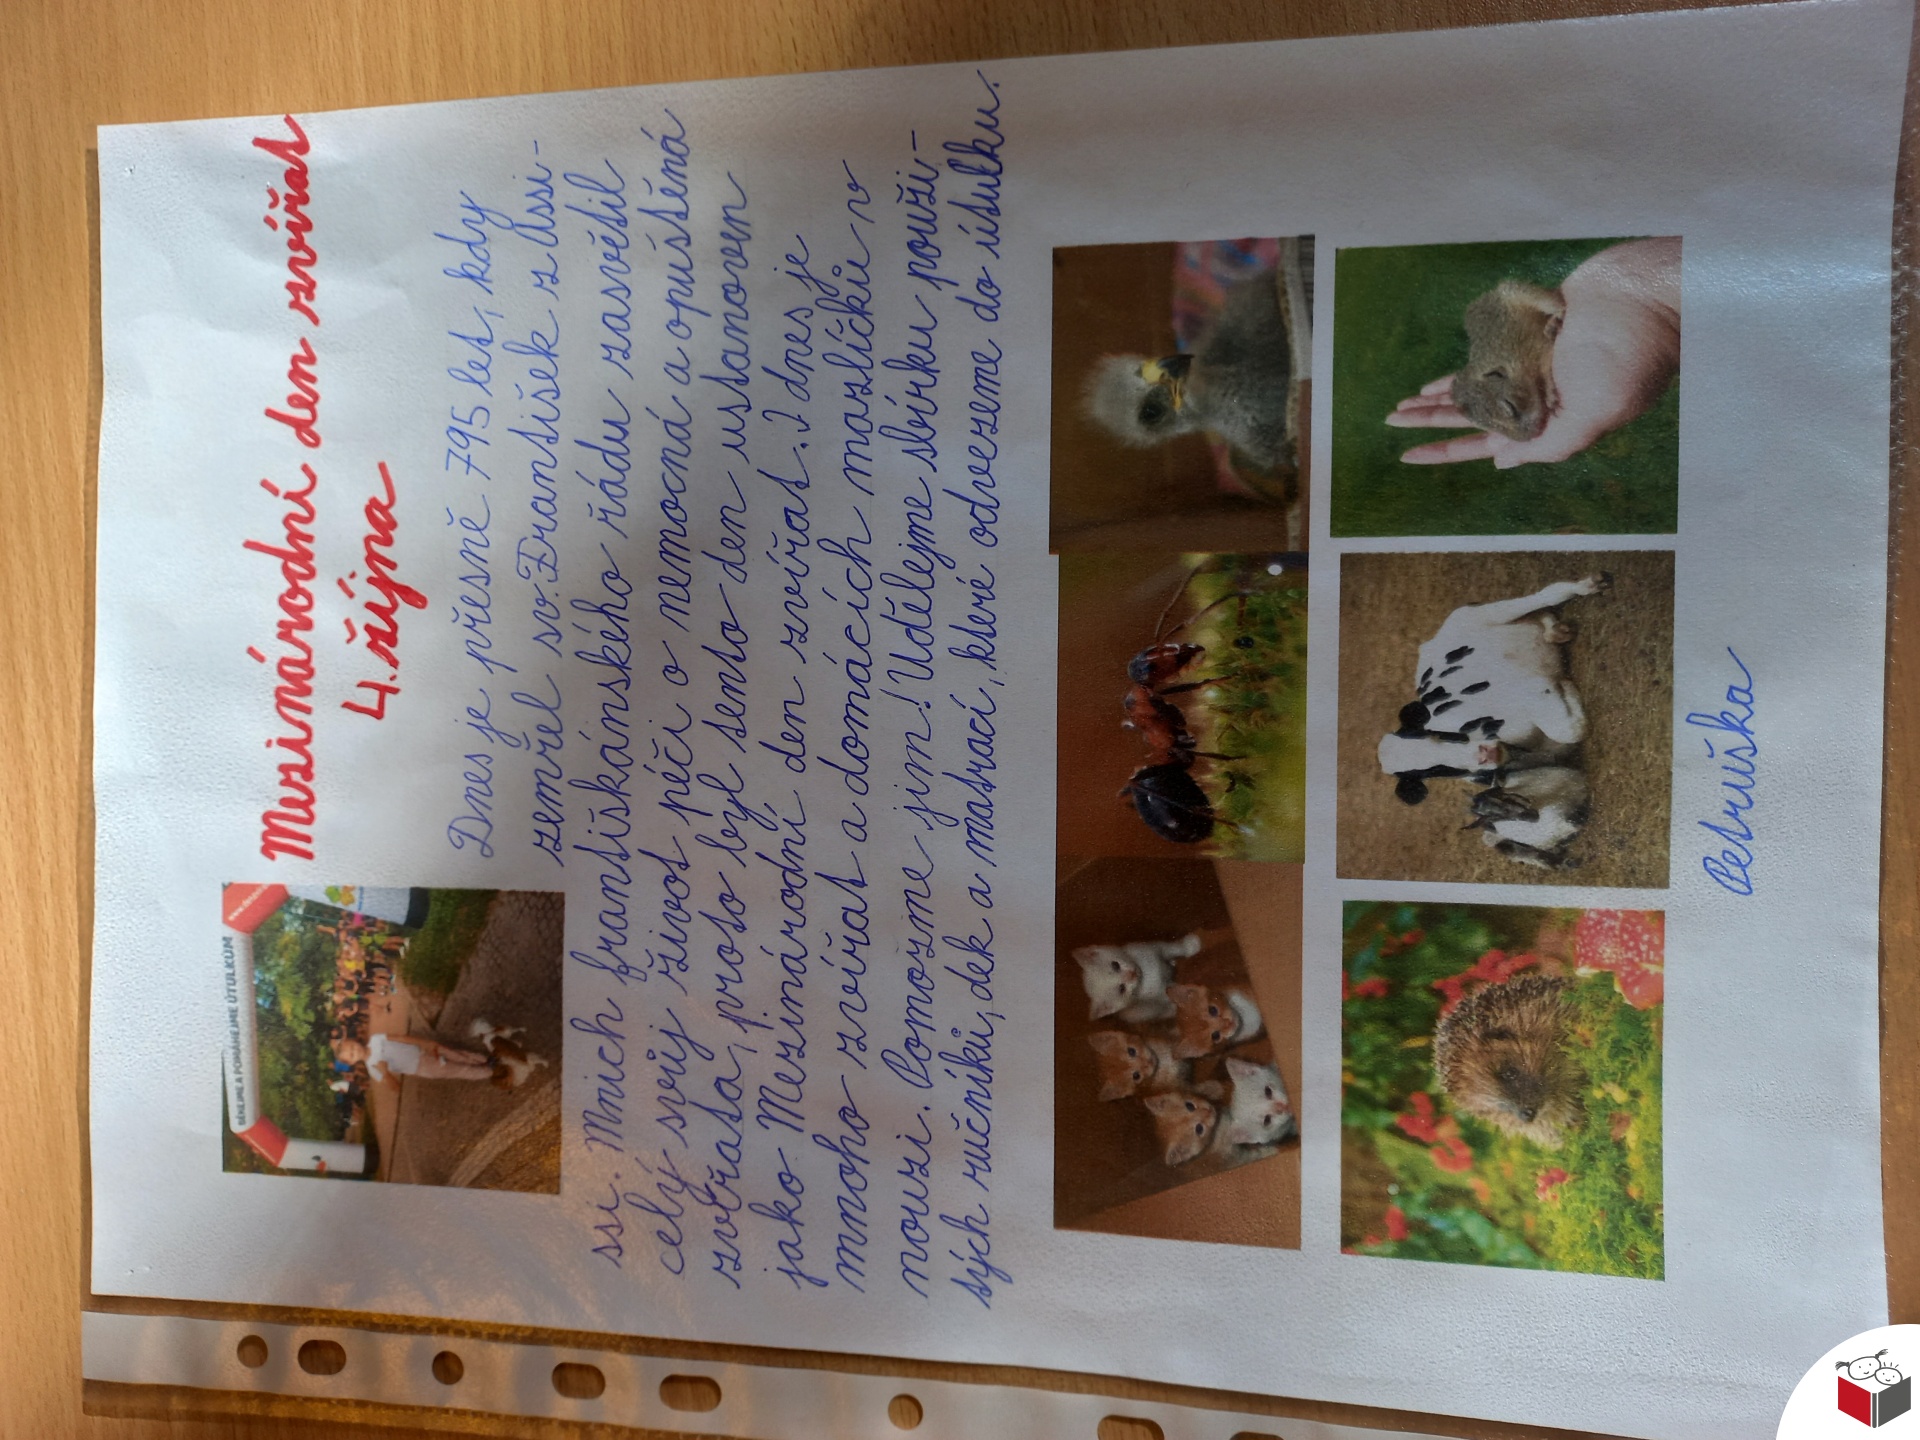 Mezinárodní den zvířat
4. října
BĚHEJME A POMÁHEJME ÚTULKŮM
Dnes je přesně 795 let, kdy
zemřel sv. František z Assi-
ssi. Mnich františkánského řádu zasvětil
celý svůj život péči o nemocná a opuštěná
zvířata, proto byl tento den ustanoven
jako Mezinárodní den zvířat. I dnes je
mnoho zvířat a domácích mazlíčků v
nouzi. Pomozme jim! Udělejme sbírku použi-
tých ručníků, dek a matrací, které odvezeme do útulku.
Petruška